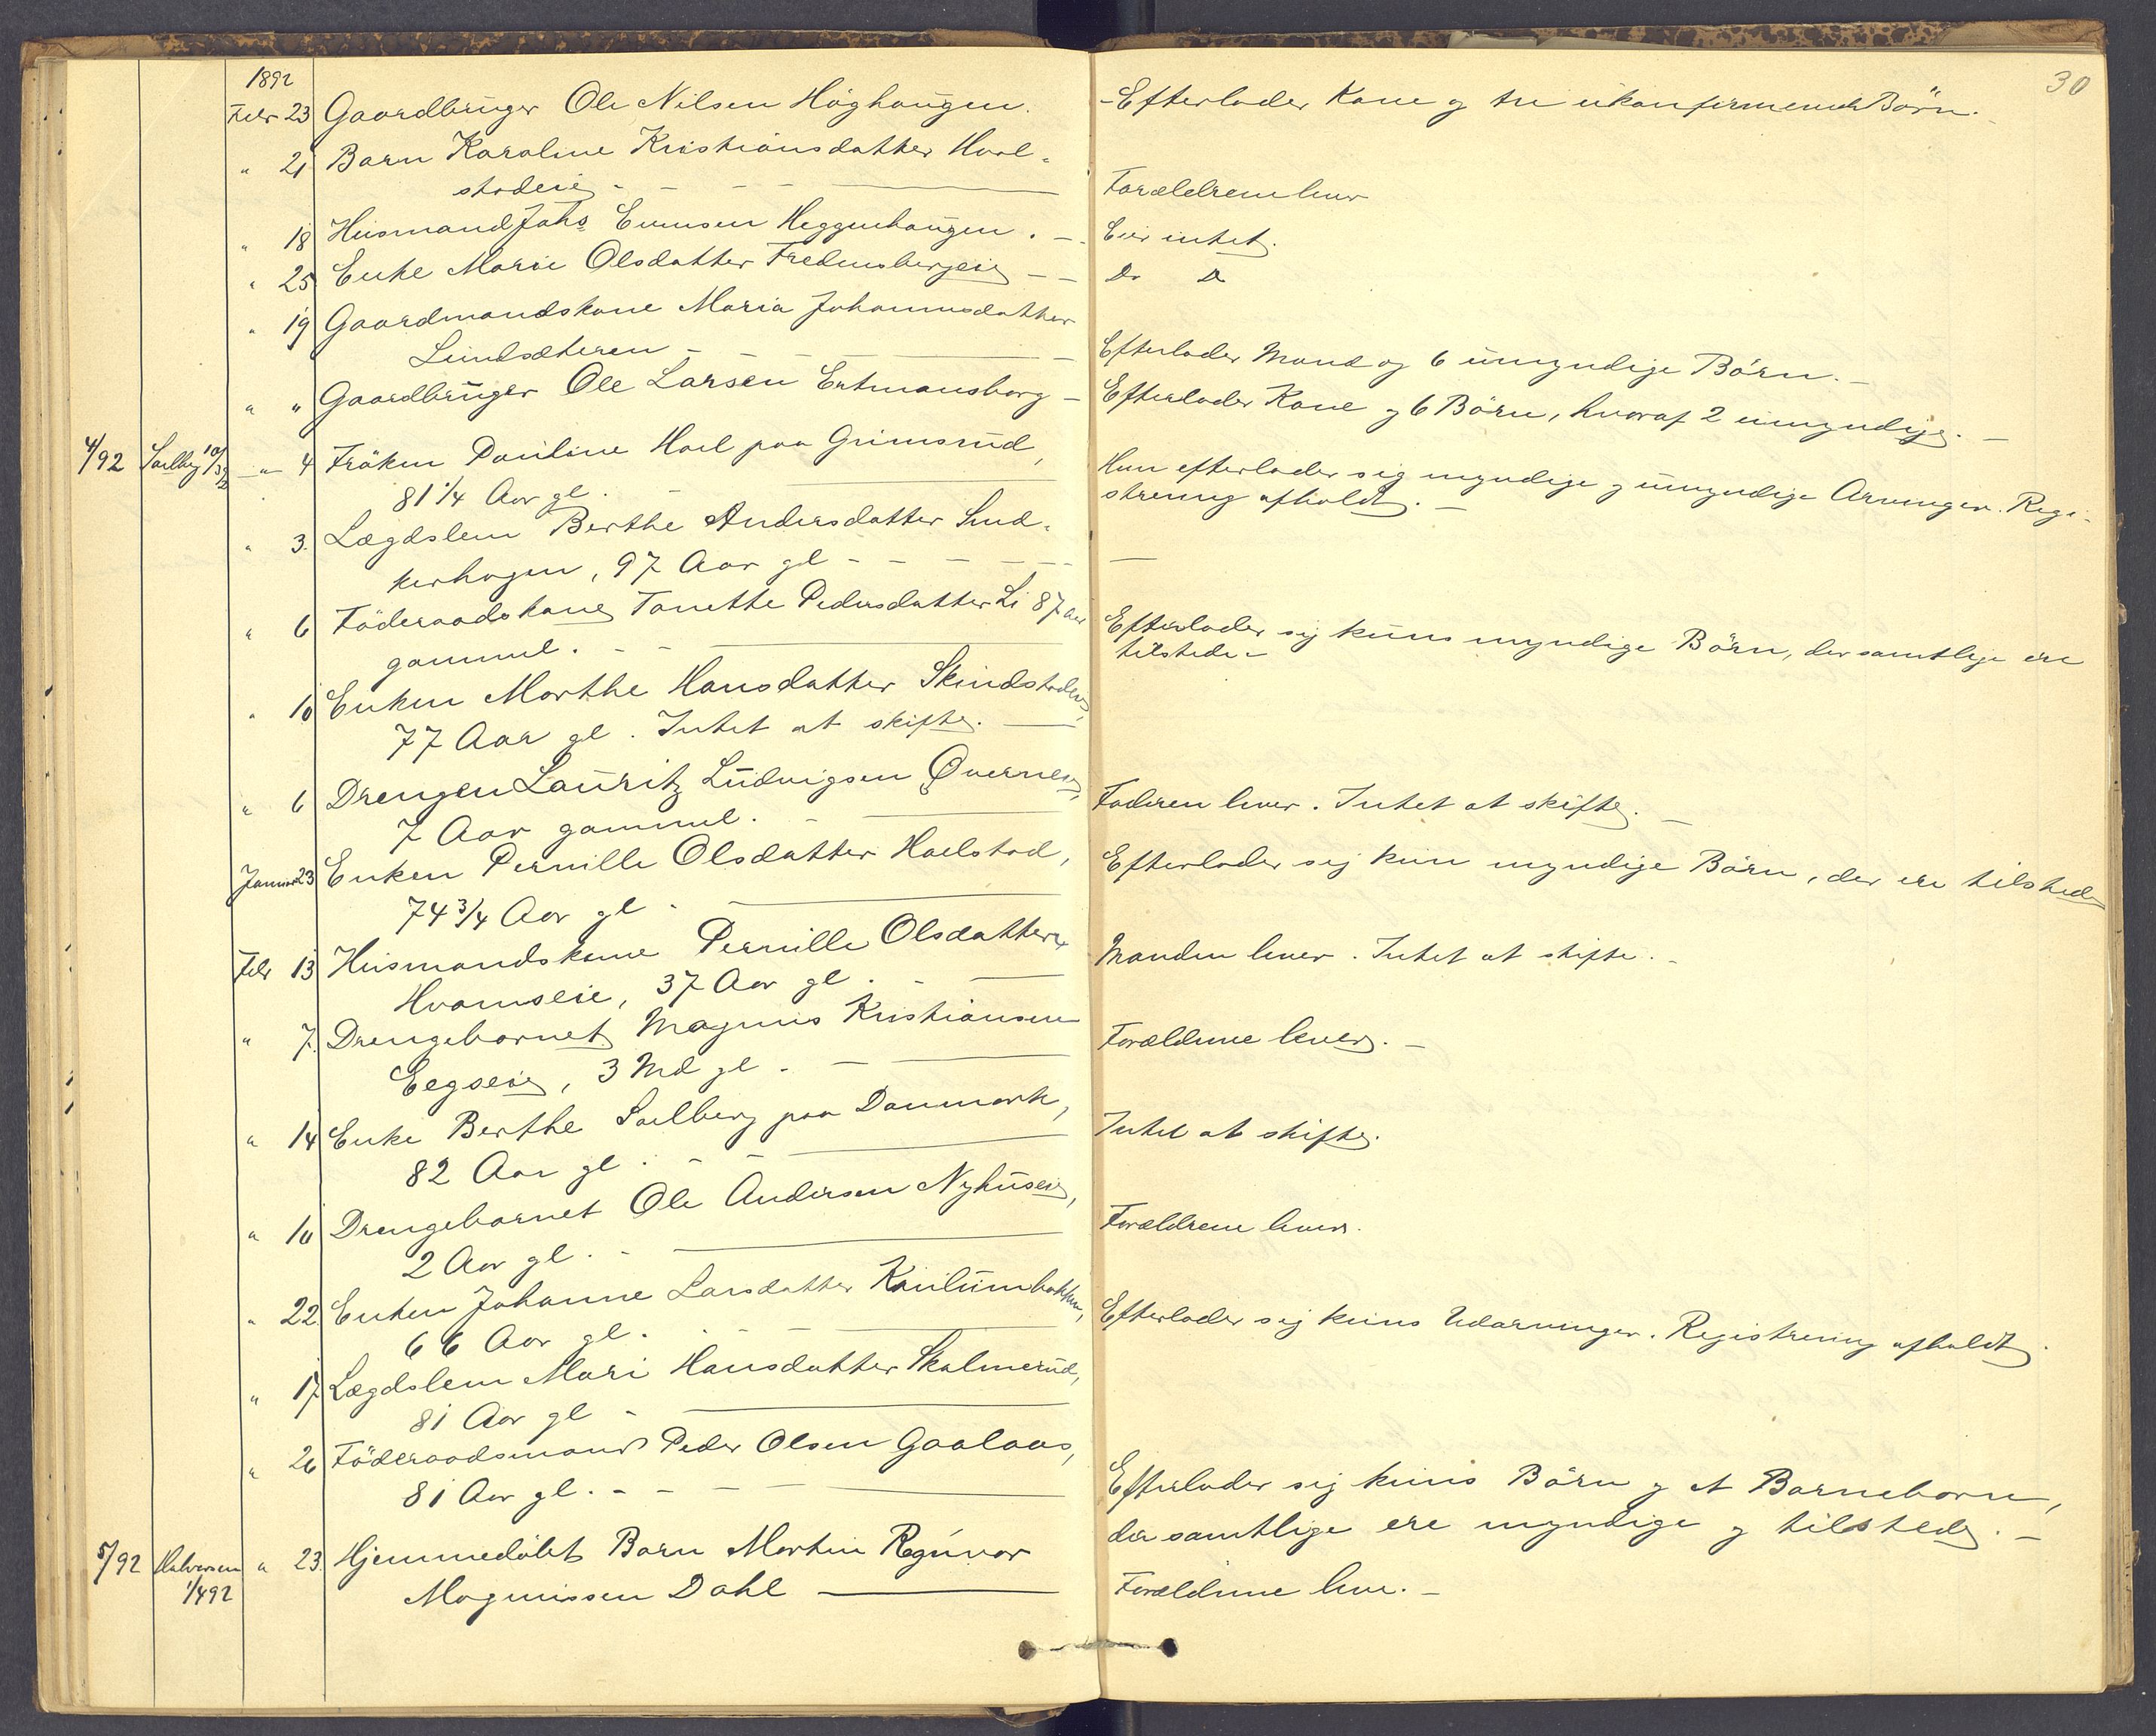 30
1892
Febr 23 Gaardbruger Ole Nilsen Höghaugen. - Efterlader Kone og tre ukonfirmerede Börn.
" 21 Barn Karoline Kristiansdatter Hoel-
stadeie - - - - Forældrene lever
" 18 Husmand Johs Evensen Heggenhaugen. - Eier intet.
" 25 Enke Marie Olsdatter Fredensbergeie - - Do Do
" 19 Gaardmandskone Maria Johannesdatter
Lundsæteren - - - - Efterlader Mand og 6 umyndige Börn. -
" " Gaardbruger Ole Larsen Ertmansborg - Efterlader Kone og 6 Börn, hvoraf 2 umyndige. -
4/92 Solberg 10/3 92 " 4 Fröken Pauline Hoel paa Grimsrud, Hun efterlader sig myndige og umyndige Arvinger. Regi-
81 1/4 Aar gl. - strering afholdt. -
" 3. Lægdslem Berthe Andersdatter Snd-
kerhagen, 97 Aar gl - - - - - -
" 6 Föderaadskone Tonette Pedersdatter Li 87 aar Efterlader sig kuns myndige Börn, der samtlige ere
gammel. - - tilstede -
" 10 Enken Marthe Hansdatter Skindstadeie,
77 Aar gl. Intet at skifte.
" 6 Drengen Lauritz Ludvigsen Qverneie, Faderen lever. Intet at skifte. -
7 Aar gammel. -
Januar 23 Enken Pernille Olsdatter Hoelstad, Efterlader sig kun myndige Börn, der ere tilstede
74 3/4 Aar gl -
Febr 13 Husmandskone Pernille Olsdatter Manden lever. Intet at skifte. -
Hvamseie, 37 Aar gl. -
" 7. Drengebarnet Magnus Kristiansen Forældrene lever. -
Eegseie, 3 Md gl. -
" 14 Enke Berthe Solberg paa Danmark, Intet at skifte.
82 Aar gl. - -
" 10 Drengebarnet Ole Andersen Nyhuseie, Forældrene lever.
2 Aar gl. -
" 22. Enken Johanne Larsdatter Kaulumbakken, Efterlader sig kuns Udarvinger. Registrering afholdt.
66 Aar gl. - - -
" 17. Lægdslem Mari Hansdatter Skalmerud,
81 Aar gl -
" 26 Föderaadsmand Peder Olsen Gaalaas, Efterlader sig kuns Börn og et Barnebarn,
81 Aar gl. - - - - der samtlige ere myndige og tilstede. -
5/92 Halvorsen 1/4 92 " 23. Hjemmedöbt Barn Martin Ragnvar Forældrene leve. -
Magnussen Dahl